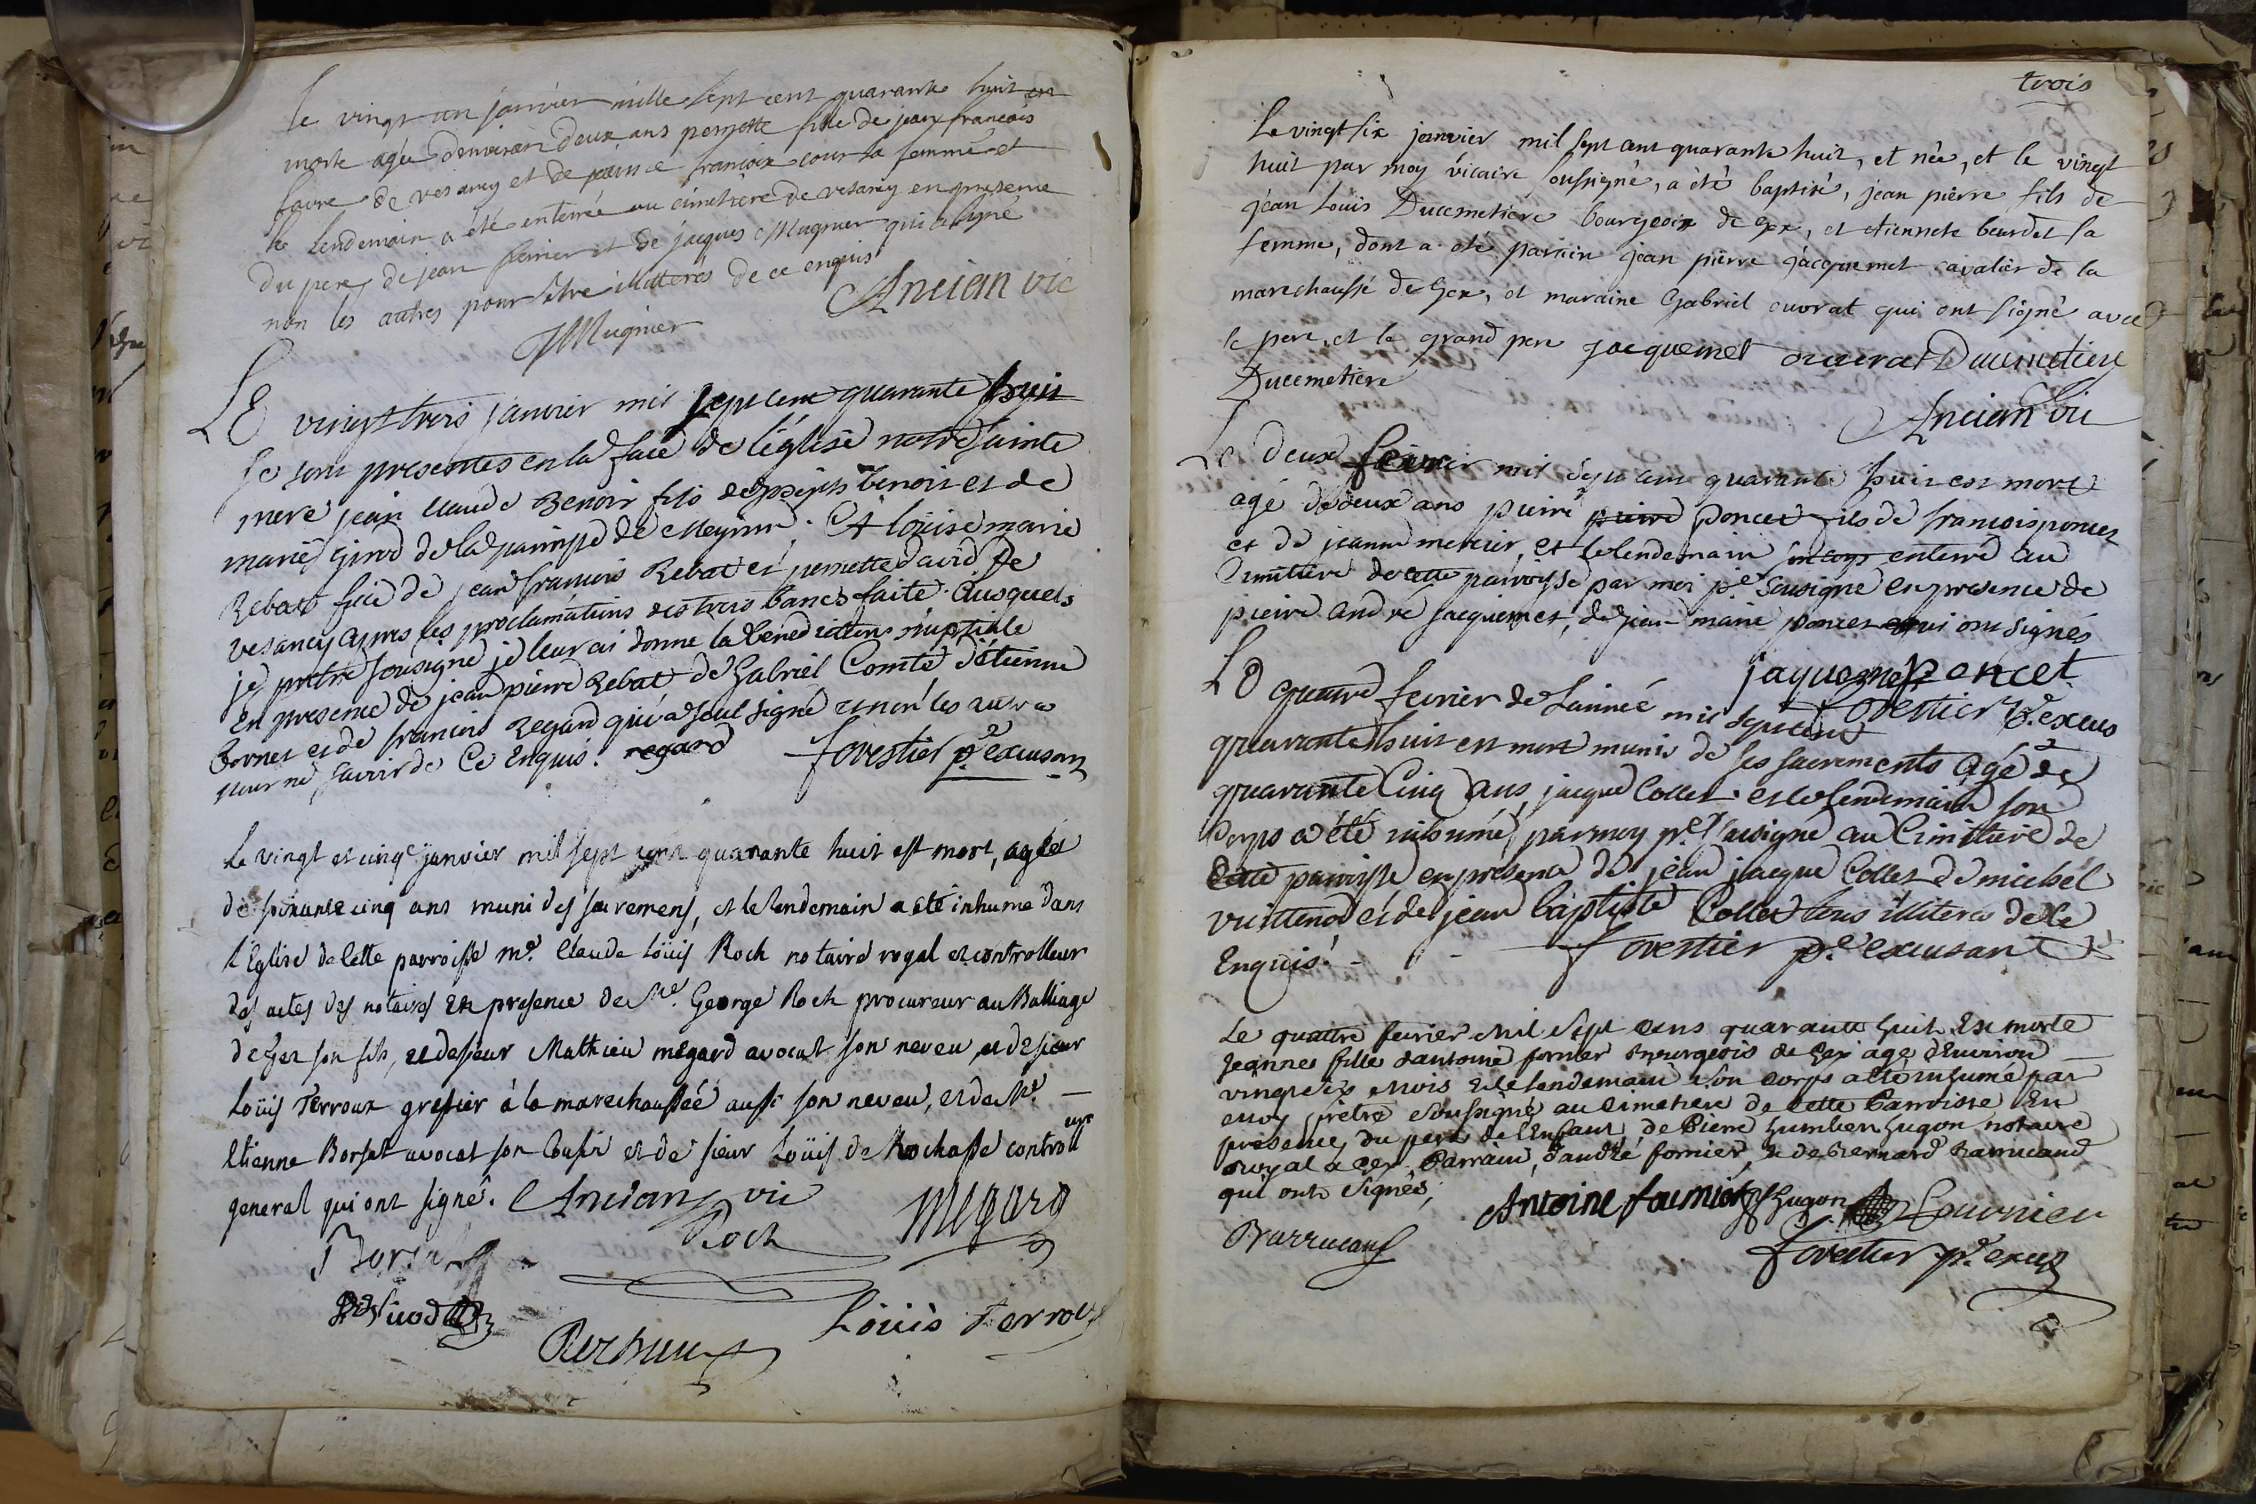 le vingt un janvier mille sept cent quarante huit est
morte agée denviron deux ans pernette fille de jean françois
favre de vesancy et de françoise cour sa femme et
le lendemain a été enterrée au cimetiere de vesancy en presence
du pere, de jean et de jacques Mugnier qui a signé
non les autres pour être illitterés de ce enquis
Ancian vic
JMugnier
LE vingt trois janvier mil sept cent quarante huit
se sont presentes en la face de l'église notre sainte
mere jean claude Benoit fils de joseph benoit et de
marie girod de la parroisse de Meyrin. Et loüise marie
Rebat fille de jean francois Rebat et pernette david de
vesancy apres les proclamations des trois bancs faite. Ausquels
je pretre sousigné je leur ai donne la bénédiction nuptiale
en presence de jean pierre Rebat de Gabriel Comte d'étienne
Bornet et de francois Regard qui a seul signé et non les autres
pour ne savoir de Ce Enquis. regard forestier p.e excusant
Le vingt et cinq.e janvier mil sept cent quarante huit est mort, agée
de soixante cinq ans muni des sacremens, et le lendemain a eté inhumé dans
l'Eglise de cette parroisse m.e Claude Loüis Roch notaire royal et controlleur
des actes des notaires en presence de M.e George Roch procureur au Balliage
de Gex son fils, et de sieur Mathieu megard avocat son neveu, et de sieur
Loüis Terroux grefier à la marechaussée aussi son neveu, et de M.e
Etienne Borsat avocat son cousin et de sieur Loüis de Rochasse controlleur
general qui ont signé. Ancian vic
Roch
Megard
Borsat
Loüis Terroux
trois
Le vingt six janvier mil sept cent quarante huit, et née, et le vingt
huit par moy vicaire soussigné, a été baptisé, jean pierre fils de
jean Louis Ducemetiere bourgeois de gex, et etiennete bourdet sa
femme, dont a été parrain jean pierre jacquemet cavalier de la
marechaussé de Gex, et maraine Gabriel ouvrat qui ont signé avec
le pere, et le grand pere jacquemet ouvrat Ducemetiere
Ducemetiere
Ancian vic
Le deux fevrier mil sept cent quarante huit est mort
agé de deux ans pierre pierre poncet fils de francois poncet
et de jeanne mercier, et le lendemain son corps enterré au
Cimitiere de cette parroysse par moi p.e sousigné en presence de
pierre andré jacquemet, de jean marie poncet qui ont signés
jaquemet poncet
forestier p.e excus
LE quatre fevrier de l'année mil sept cent
quarante huit est mort munis de ses sacrements Agé de
quarante Cinq Ans, jacque Collet. et le lendemain son
Corps a été inhumé, par moy p.e sousigné au Cimitiere de
Cette parroisse en presence de jean jacque Collet de michel
vuittenod et de jean baptiste Collet tous illiteres de Ce
Enquis. forestier p.e excusant
Le quattre fevrier Mil Sept Cens quarante huit Est morte
Jeanne fille d'antoine fornier Bourgeois de Gex age d'Environ
vingt six Mois et le lendemain son corps a eté inhumé par
moy prêtre soussigné au Cimetiere de Cette Parroisse En
presence du pere de l'Enfant de Pierre humbert hugon notaire
royal à Gex, Parrain, d'andré fornier, et de Bernard Barrucand
qui ont signés,
Antoine fournier Hugon fournier
Barrucand forestier p.e excus